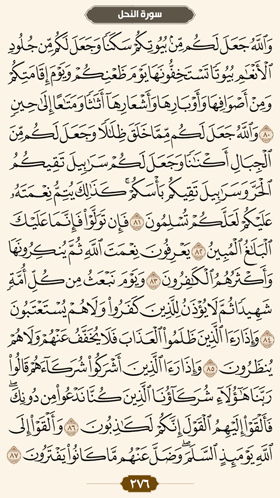 سورة النحل
وَٱللَّهُ جَعَلَ لَكُم مِّنۢ بُيُوتِكُمْ سَكَنًا وَجَعَلَ لَكُم مِّن جُلُودِ
ٱلْأَنْعَٰمِ بُيُوتًا تَسْتَخِفُّونَهَا يَوْمَ ظَعْنِكُمْ وَيَوْمَ إِقَامَتِكُمْ
وَمِنْ أَصْوَافِهَا وَأَوْبَارِهَا وَأَشْعَارِهَآ أَثَٰثًا وَمَتَٰعًا إِلَىٰ حِينٍ
٨٠ وَٱللَّهُ جَعَلَ لَكُم مِّمَّا خَلَقَ ظِلَٰلًا وَجَعَلَ لَكُم مِّنَ
ٱلْجِبَالِ أَكْنَٰنًا وَجَعَلَ لَكُمْ سَرَٰبِيلَ تَقِيكُمُ
ٱلْحَرَّ وَسَرَٰبِيلَ تَقِيكُم بَأْسَكُمْ ۚ كَذَٰلِكَ يُتِمُّ نِعْمَتَهُۥ
عَلَيْكُمْ لَعَلَّكُمْ تُسْلِمُونَ ٨١ فَإِن تَوَلَّوْا۟ فَإِنَّمَا عَلَيْكَ
ٱلْبَلَٰغُ ٱلْمُبِينُ ٨٢ يَعْرِفُونَ نِعْمَتَ ٱللَّهِ ثُمَّ يُنكِرُونَهَا
وَأَكْثَرُهُمُ ٱلْكَٰفِرُونَ ٨٣ وَيَوْمَ نَبْعَثُ مِن كُلِّ أُمَّةٍ
شَهِيدًا ثُمَّ لَا يُؤْذَنُ لِلَّذِينَ كَفَرُوا۟ وَلَا هُمْ يُسْتَعْتَبُونَ
٨٤ وَإِذَا رَءَا ٱلَّذِينَ ظَلَمُوا۟ ٱلْعَذَابَ فَلَا يُخَفَّفُ عَنْهُمْ وَلَا هُمْ
يُنظَرُونَ ٨٥ وَإِذَا رَءَا ٱلَّذِينَ أَشْرَكُوا۟ شُرَكَآءَهُمْ قَالُوا۟
رَبَّنَا هَٰٓؤُلَآءِ شُرَكَآؤُنَا ٱلَّذِينَ كُنَّا نَدْعُوا۟ مِن دُونِكَ ۖ
فَأَلْقَوْا۟ إِلَيْهِمُ ٱلْقَوْلَ إِنَّكُمْ لَكَٰذِبُونَ ٨٦ وَأَلْقَوْا۟ إِلَى
ٱللَّهِ يَوْمَئِذٍ ٱلسَّلَمَ ۖ وَضَلَّ عَنْهُم مَّا كَانُوا۟ يَفْتَرُونَ ٨٧
٢٧٦